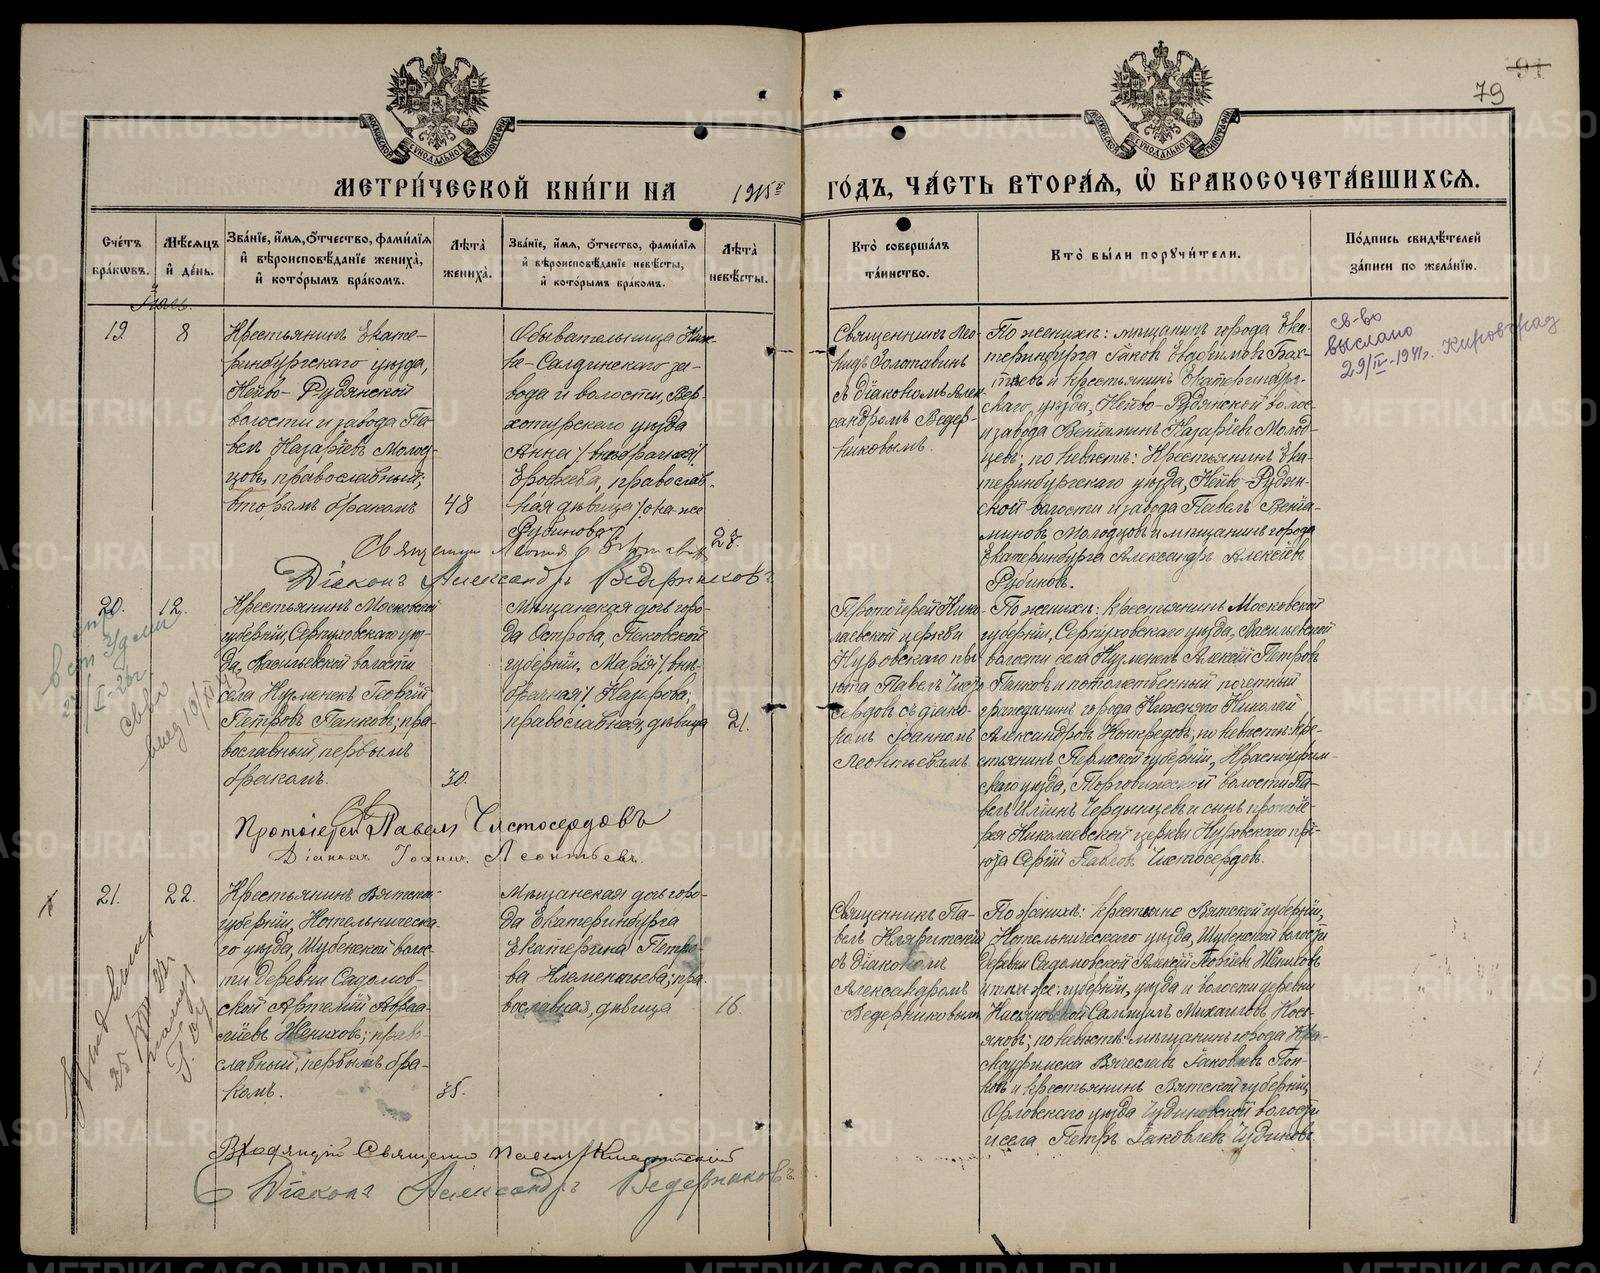 79
МЕТРИ́ЧЕСКОЙ КНИ́ГИ НА 1915й ГО́ДЪ, ЧА́СТЬ ВТОРА́Я, Ѽ БРАКОСОЧЕТА́ВШИХСЯ.
МОСКОВСКОЙ СѴНОДАЛЬНОЙ ТИПОГРАФІИ
МОСКОВСКОЙ СѴНОДАЛЬНОЙ ТИПОГРАФІИ
Сче́тъ бра́кѡвъ.
Мѣ́сяцъ и҆ де́нь.
Зва́нїе, и҆́мѧ, ѻ҆́тчество, фами́лїѧ и҆ вѣроисповѣ́данїе жениха̀, и҆ кото́рымъ бра́комъ.
Лѣта̀ жениха̀.
Зва́нїе, и҆́мѧ, ѻ҆́тчество, фами́лїѧ и҆ вѣроисповѣ́данїе невѣ́сты, и҆ кото́рымъ бра́комъ.
Лѣта̀ невѣ́сты.
Кто̀ соверша́лъ та́инство.
Кто̀ бы́ли поручи́тели.
По́дпись свидѣ́телей за́писи по жела́нїю.
Іюль.
19
8
Крестьянинъ Екате-
ринбургскаго уѣзда,
Нейво-Рудянской
волости и завода Па-
велъ Назаріевъ Молод-
цовъ, православный;
вторымъ бракомъ
48
Обывательница Ниж-
не-Салдинскаго за-
вода и волости, Вер-
хотурскаго уѣзда
Анна /внѣбрачная/
Ерофеева, православ-
ная дѣвица /она-же
Рубинова/
28.
Священникъ Лео-
нидъ Золотавинъ
съ діакономъ Алек-
сандромъ Ведер-
никовымъ.
По женихѣ: мѣщанинъ города Ека-
теринбурга Іаковъ Евдокимовъ Бах-
тѣевъ и крестьянинъ Екатеринбург-
скаго уѣзда, Нейво-Рудянской волос-
и завода Веніаминъ Назаріевъ Молод-
цовъ; по невѣстѣ: Крестьянинъ Ека-
теринбургскаго уѣзда, Нейво-Рудян-
ской волости и завода Павелъ Веніа-
миновъ Молодцовъ и мѣщанинъ города
Екатеринбурга Александръ Алексѣевъ
Рубиновъ.
св-во
выслано
29/IV-1941г. Кировград
Священникъ Леонидъ Золотавинъ
Діаконъ Александръ Ведерниковъ
20.
12.
Крестьянинъ Московской
губерніи, Серпуховскаго уѣз-
да, Васильевской волости
села Кузменокъ Георгій
Петровъ Панковъ; пра-
вославный, первымъ
бракомъ.
30.
Мѣщанская дочь горо-
да Острова, Псковской
губерніи, Марія /внѣ-
брачная/ Назарова;
православная, дѣвица
21.
Протоіерей Нико-
лаевской церкви
Нуровскаго прі-
юта Павелъ Чисто-
сердовъ съ діако-
номъ Іоанномъ
Леонтьевымъ
По женихѣ: крестьянинъ Московской
губерніи, Серпуховскаго уѣзда, Васильевской
волости села Кузменокъ Алексій Петровъ
Панковъ и потомственный почетный
гражданинъ города Нижняго Николай
Александровъ; по невѣстѣ: Кре-
стьянинъ Пермской губерніи, Красноуфим-
скаго уѣзда, Торговижской волости Па-
велъ Ильинъ Чердынцевъ и сынъ протоіе-
рея Николаевской церкви Нуровскаго прі-
юта Сергій Павловъ Чистосердовъ.
Протоіерей Павелъ Чистосердовъ
Діаконъ Іоаннъ Леонтьевъ.
21.
22.
Крестьянинъ Вятской
губерніи, Котельническа-
го уѣзда, Шубенской волос-
ти деревни Садомов-
ской Артемій
Жениховъ; право-
славный, первымъ бра-
комъ.
35.
Мѣщанская дочь горо-
да Екатеринбурга
Екатерина Петро-
ва Клементьева; пра-
вославная, дѣвица
16.
Священникъ Па-
велъ Кляритскій
съ діакономъ
Александромъ
Ведерниковымъ
По женихѣ: крестьяне Вятской губерніи,
Котельническаго уѣзда, Шубенской волости
деревни Садомовской Алексій Жениховъ
и той-же губерніи, уѣзда и волости деревни
Самуилъ Михайловъ Нося-
ковъ; по невѣстѣ: мѣщанинъ города Кра-
сноуфимска Вячеславъ Іаковлевъ Поп-
ковъ и крестьянинъ Вятской губерніи,
Орловскаго уѣзда Чудиновской волости
и села Петръ Іаковлевъ Чудиновъ.
Священникъ Павелъ Кляритскій
Діаконъ Александръ Ведерниковъ
METRIKI.GASO-URAL.RU